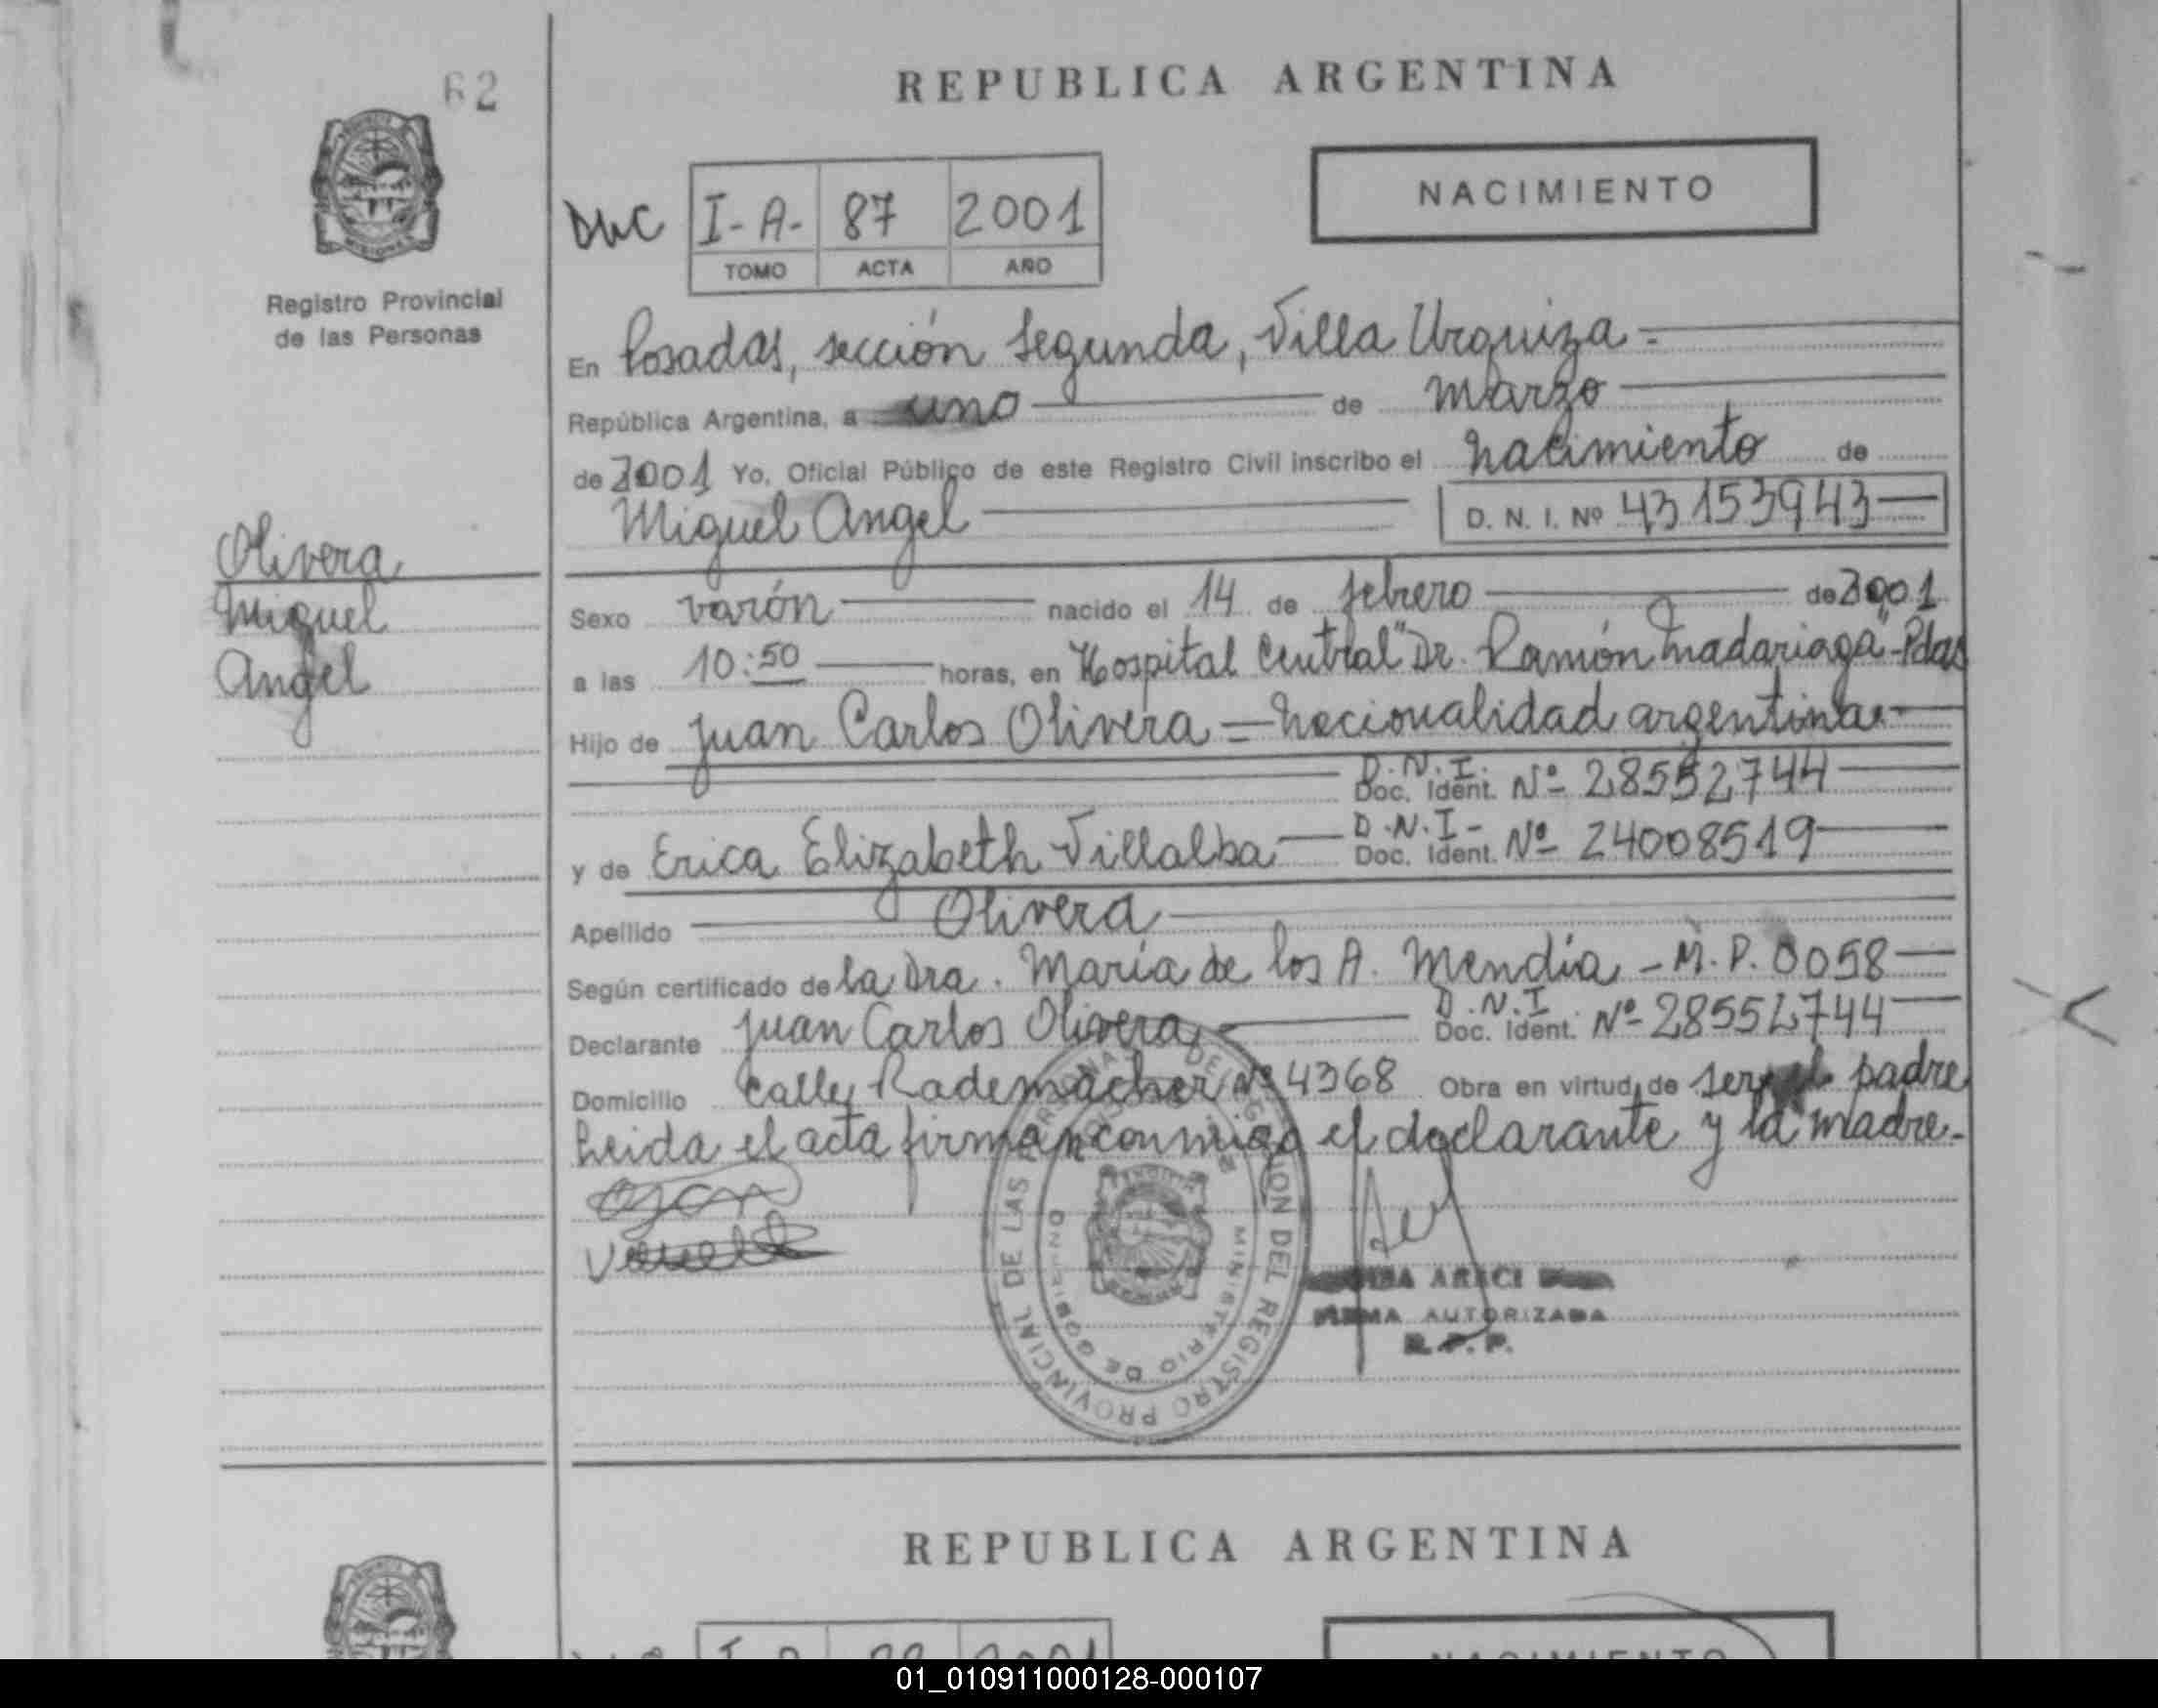 62
REPUBLICA ARGENTINA
NACIMIENTO
I-A- 87 2001
TOMO ACTA AÑO
Registro Provincial
de las Personas
En Posadas, sección Segunda, Villa Urquiza.-
República Argentina, a uno de marzo
de 2001 Yo, Oficial Público de este Registro Civil inscribo el nacimiento de
Miguel Angel D. N. I. Nº 43153943
Olivera
Miguel
Angel
Sexo varón nacido el 14 de febrero de 2001
a las 10:50 horas, en Hospital Central "Dr. Ramón Madariaga"-Pdas
Hijo de Juan Carlos Olivera = nacionalidad argentina.-
D.N.I.
Doc. Ident. Nº 28552744
D.N.I-
y de Erica Elizabeth Villalba Doc. Ident. Nº 24008519
Apellido Olivera
Según certificado de la Dra. María de los A. Mendia - M.P. 0058
D.N.I
Declarante Juan Carlos Olivera Doc. Ident. Nº 28552744
Domicilio calle Rademacher Nº 4368 Obra en virtud de ser el padre
Leida el acta firman conmigo el declarante y la madre.-
DEL REGISTRO PROVINCIAL DE LAS
MINISTERIO DE GOBIERNO
ARACI
FIRMA AUTORIZADA
R.P.P.
REPUBLICA ARGENTINA
NACIMIENTO
01_010911000128-000107